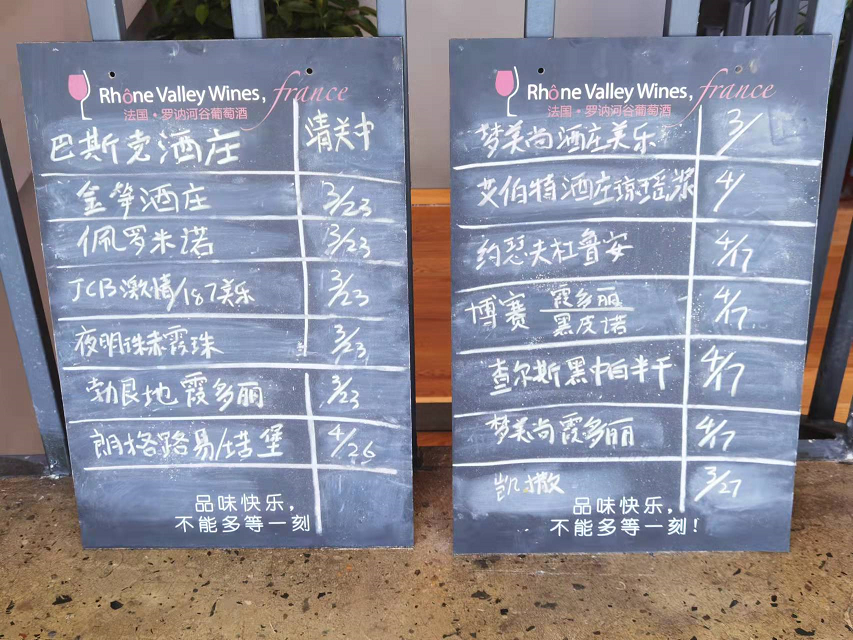 Rhône Valley Wines, france
法国·罗讷河谷葡萄酒
巴斯克酒庄 清关中
金筝酒庄 3/23
佩罗米诺 3/23
JCB激情/187美乐 3/23
夜明珠赤霞珠 3/23
勃艮地霞多丽 3/23
朗格路易/塔堡 4/26
品味快乐,
不能多等一刻
Rhône Valley Wines, france
法国·罗讷河谷葡萄酒
梦美尚酒庄美乐 3/
艾伯特酒庄琼瑶浆 4/
约瑟夫杜鲁安 4/17
博赛 霞多丽 4/7
黑皮诺
查尔斯黑中白半干 4/7
梦美尚霞多丽 4/7
凯撒 3/27
品味快乐,
不能多等一刻!